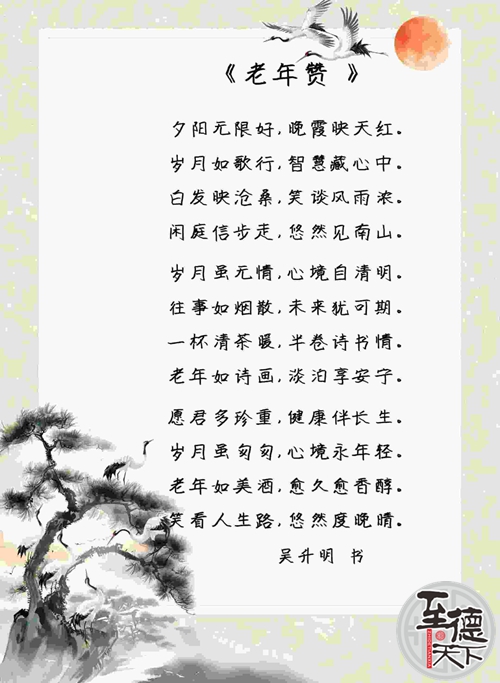 《老年赞 》
夕阳无限好,晚霞映天红。
岁月如歌行,智慧藏心中。
白发映沧桑,笑谈风雨浓。
闲庭信步走,悠然见南山。
岁月虽无情,心境自清明。
往事如烟散,未来犹可期。
一杯清茶暖,半卷诗书情。
老年如诗画,淡泊享安宁。
愿君多珍重,健康伴长生。
岁月虽匆匆,心境永年轻。
老年如美酒,愈久愈香醇。
笑看人生路,悠然度晚晴。
吴升明 书
至德天下